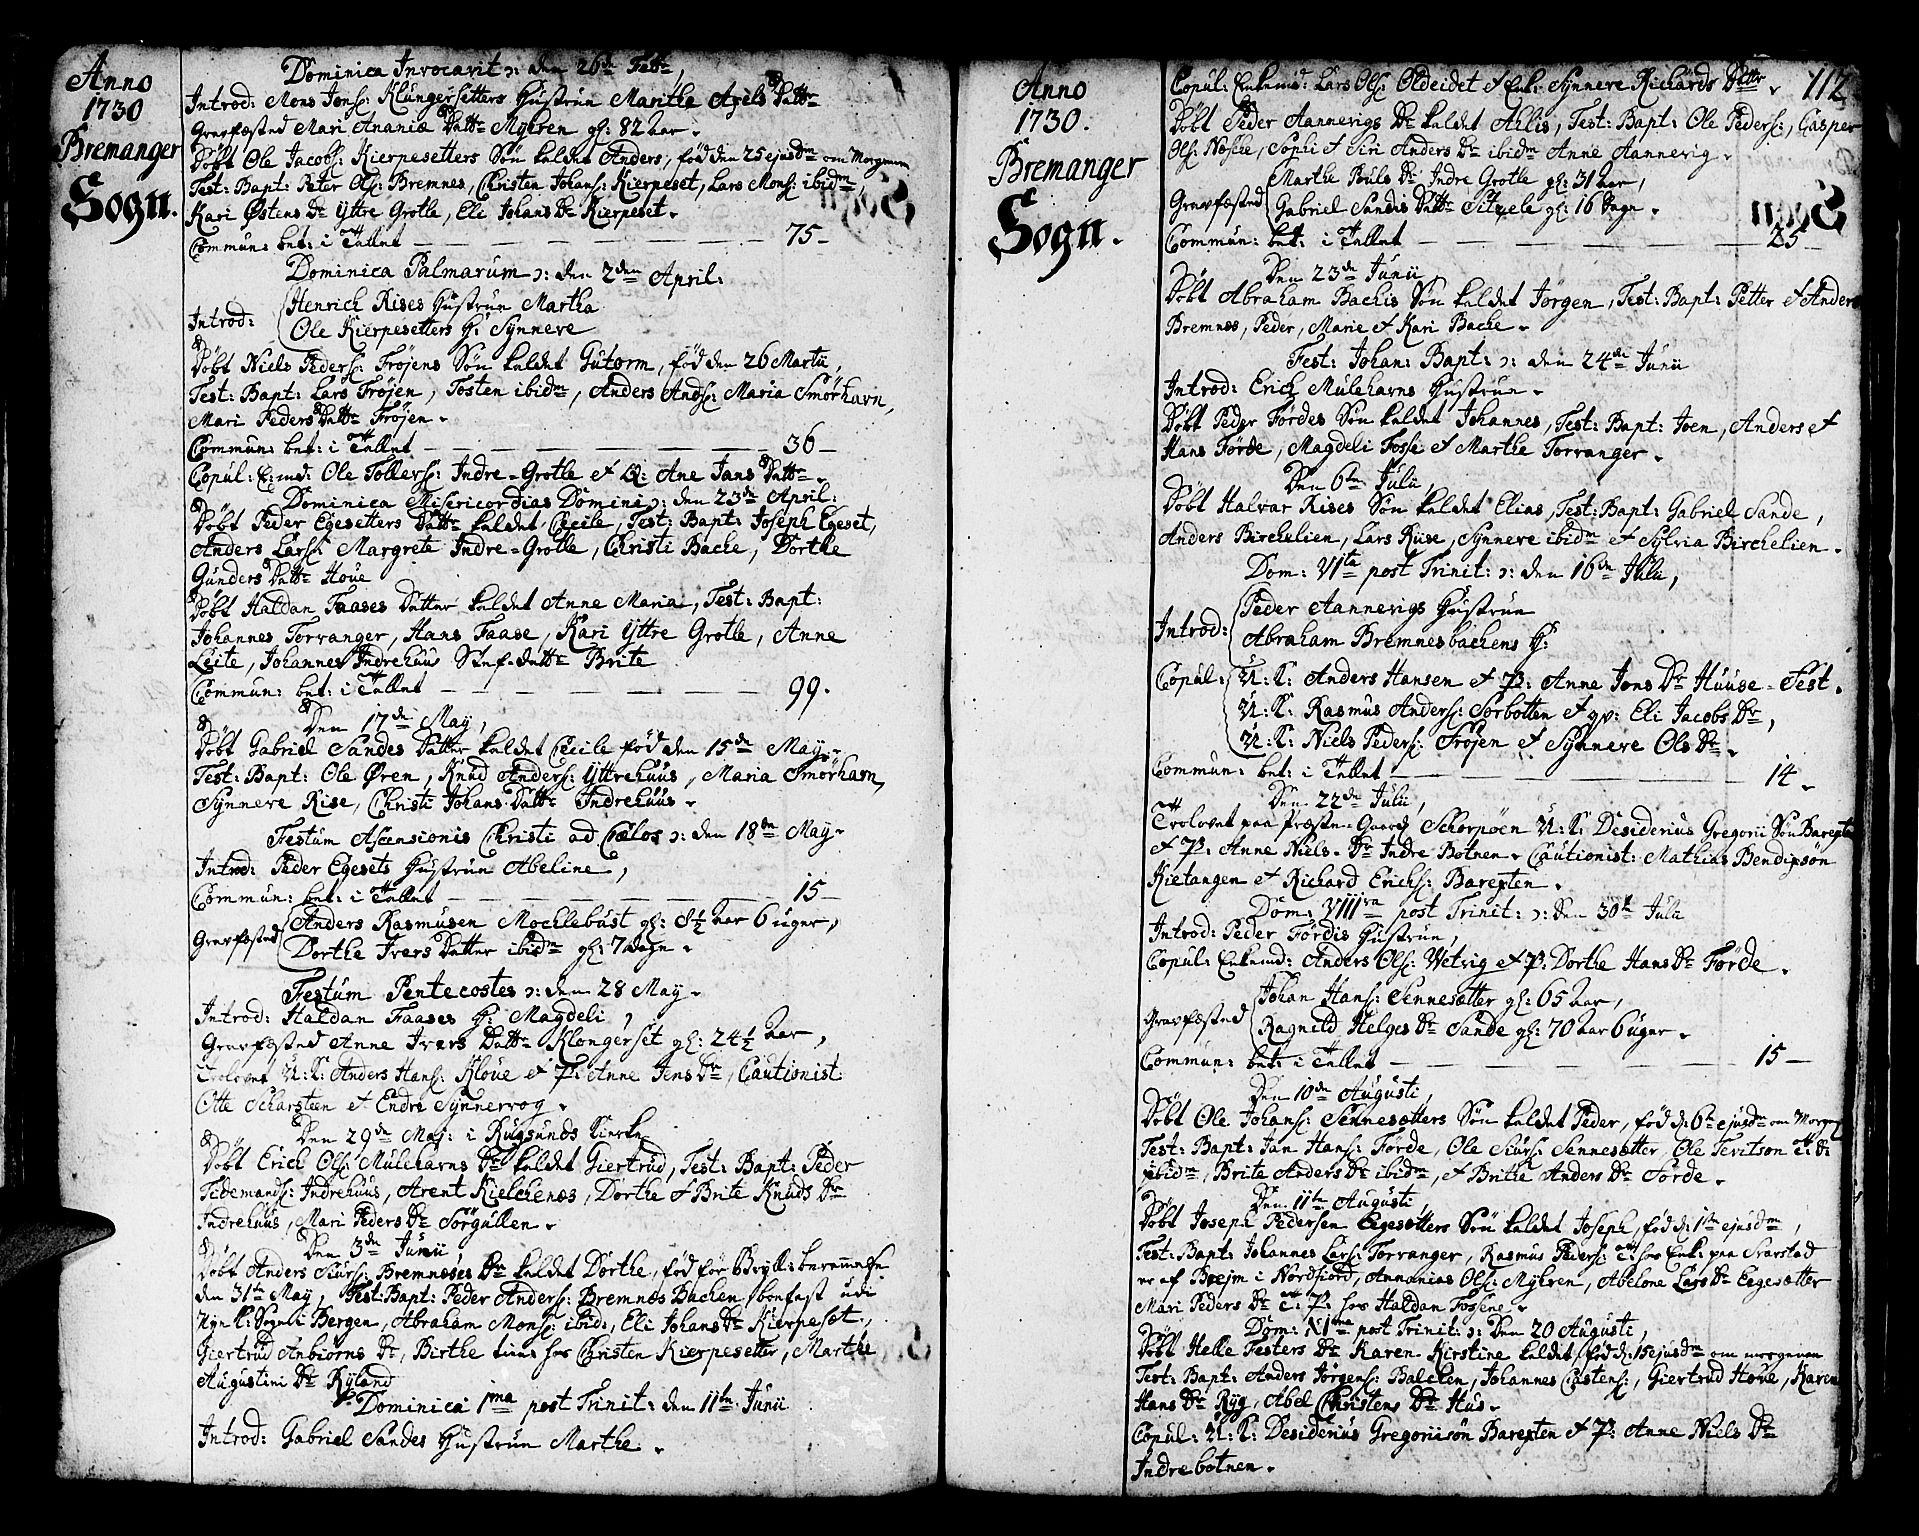 Anno
1730
Bremanger
Sogn.
Dominica Invocavit ɔ: den 26de Febr.
Introd: Mons Jons: Klungersetters Hustrue Marithe Axels Dattr
Gravfæsted Mari Ananiæ Dattr Myhren gl: 82 aar.
Døbt Ole Jacobs: Kierpesetters Søn kaldet Anders, fød den 25 ejusdm om Morgenen
Test: Bapt: Peter Ols: Bremnes, Christen Johans: Kierpeset, Lars Mons: ibidm,
Kari Østens Dr Yttre Grotle, Eli Johans Dr Kierpeset.
Commun: bet: i Tallet — 75 —
Dominica Palmarum ɔ: den 2den April:
Introd: Henrich Rises Hustrue Martha
Ole Kierpesetters H: Synneve
Døbt Niels Peders: Frøjens Søn kaldet Gutorm, fød den 26 Martii,
Test: Bapt: Lars Frøjen, Tosten ibidm, Anders Ands: Maria Smørhavn,
Mari Peders Dattr Frøjen.
Commun: bet: i Tallet — 36 —
Copul: E:md: Ole Tollers: Indre-Grotle et Q: Ane Jans Dattr.
Dominica Misericordias Domini ɔ: den 23de April:
Døbt Peder Egesetters Dattr kaldet Cecile, Test: Bapt: Joseph Egeset,
Anders Lars: Margrete Indre-Grotle, Christi Bache, Dorthe
Gunders Dattr Houe
Døbt Haldan Faases Datter kaldet Anne Maria, Test: Bapt:
Johannes Torranger, Hans Faase, Kari Yttre Grotle, Anne
Leite, Johannes Indrehuus Stif-dattr Brite
Commun: bet: i Tallet — 99.
Den 17de May,
Døbt Gabriel Sandes Datter kaldet Cecile fød den 15de May.
Test: Bapt: Ole Øren, Knud Anders: Yttrehuus, Maria Smørhavn,
Synneve Rise, Christi Johans Dattr Indrehuus.
Festum Ascensionis Christi ad Cælos ɔ: den 18de May.
Introd: Peder Egesets Hustrue Abeline,
Commun: bet: i Tallet — 15 —
Gravfæsted Anders Rasmusen Mochlebust gl: 8½ aar 6 uger,
Dorthe Ivers Datter ibidm gl: 7 dage.
Festum Pentecostes ɔ: den 28 May.
Introd: Haldan Faases H: Magdeli,
Gravfæsted Anne Ivers Dattr Klongerset gl: 24½ aar,
Trolovet U:K: Anders Hans: Kloue et P: Anne Jens Dr, Cautionist:
Otte Scharsteen et Endre Synnevog.
Den 29de Maj: i Rugsunds Kirke,
Døbt Erich Ols: Mulehavns Dr kaldet Giertrud, Test: Bapt: Peder
Tidemands: Indrehuus, Arent Kielchenæs, Dorthe et Brite Knuds Dr
Indrehuus, Mari Peders Dr Sørgullen.
Den 3de Junii,
Døbt Anders Siurs: Bremneses Dr kaldet Dorthe, fød for
den 31te May, Test: Bapt: Peder Anders: Bremnes Bachen, bonfast udi
Nye K: Sogn i Bergen, Abraham Mons: ibid:, Eli Johans Dr Kierpeset,
Giertrud Anbiørns Dr, Birthe tiene hos Christen Kierpesetter, Marthe
Augustini Dr Ryland
Dominica 1ma post Trinit: den 11te Junii
Introd: Gabriel Sandes Hustrue Marthe.
Anno
1730.
Bremanger
Sogn.
112
Copul: Enkemd: Lars Ols: Oldeidet et Enk: Synneve Richards Dattr.
Døbt Peder Aannevigs Dr kaldet Ahlis, Test: Bapt: Ole Peders:, Casper
Ols: Nøsche, Sophi et Siri Anders Dr ibidm Anne Aannevig.
Gravfæsted Marthe Pouls Dr Indre Grotle gl: 31 aar,
Gabriel Sandis Dattr Sitzele gl: 16 dage.
Commun: bet: i Tallet — 25 —
Den 23de Junii,
Døbt Abraham Bachis Søn kaldet Jørgen, Test: Bapt: Petter et Anders
Bremnes, Peder, Marie et Kari Bache.
Fest: Johan: Bapt: ɔ: den 24de Junii
Introd: Erich Mulehavns Hustrue.
Døbt PederFørdes Søn kaldet Johannes, Test: Bapt: Joen, Anders et
Hans Førde, Magdeli Fosse et Marthe Torranger.
Den 6te Julii,
Døbt Halvar Rises Søn kaldet Elias, Test: Bapt: Gabriel Sande,
Anders Birchelien, Lars Riise, Synneve ibidm et Sylvia Birchelien.
Dom: VIta post Trinit: ɔ: den 16de Julii,
Introd: Peder Aannevigs Hustrue
Abraham Bremnesbachens H:
Copul: U:K: Anders Hansen et P: Anne Jons Dr Huuse-Fest.
U:K: Rasmus Anders: Sorbotten et qv: Eli Jacobs Dr,
U:K: Niels Peders: Frøjen et Synneve Ols Dr.
Commun: bet: i Tallet — 14.
Den 22de Julii,
Trolovet paa Præste-Gaard Schorpøen U:K: Desiderius Gregorii Søn Barexten
et P: Anne Niels Dr Indre Botnen. Cautionist: Mathias Bendixsøn
Kietangen et Richard Erichs: Barexten.
Dom: VIIIva post Trinit: ɔ: den 30te Julii
Introd: Peder Førdis Hustrue,
Copul: Enkemd: Anders Ols: Vetvig et P: Dorthe Hans Dr Førde.
Gravfæsted Johan Hans: Sennesætter gl: 65 aar,
Ragnild Helges Dr Sande gl: 70 aar 6 uger.
Commun: bet: i Tallet — 15 —
Den 10de Augusti,
Døbt Ole Johans: Sennesætters Søn kaldet Peder, fød d: 6te ejusdm om Morgen
Test: Bapt: Jan Hans: Førde, Ole Siurs: Sennesætter, Ole Tevitson
ibidm, Brite Anders Dr ibidm, et Brithe Anders Dr Førde.
Den 11te Augusti,
Døbt Joseph Pedersen Egesætters Søn kaldet Joseph, fød d: 1te ejusdm,
Test: Bapt: Johannes Lars: Torranger, Rasmus Peders: hos Enk: paa Svarstad
er af Brejm i Nordfiord, Annanias Ols: Myhren, Abelone Lars Dr Eegesætter
Mari Peders Dr T: P: hos Haldan Fossene.
Dom: XIma post Trinit: ɔ: den 20 Augusti,
Døbt Helle Festers Dr Karen Kirstine kaldet fød d: 15 ejusdm om morgenen
Test: Bapt: Anders Jørgens: Balchen, Johannes Castens:, Giertrud Houe, Karen
Hans Dr Ryg, Abel Christens Dr Hus.
Copul: U:K: Desiderius Gregoriisøn Barexten et P: Anne Niels Dr
Indrebotnen.